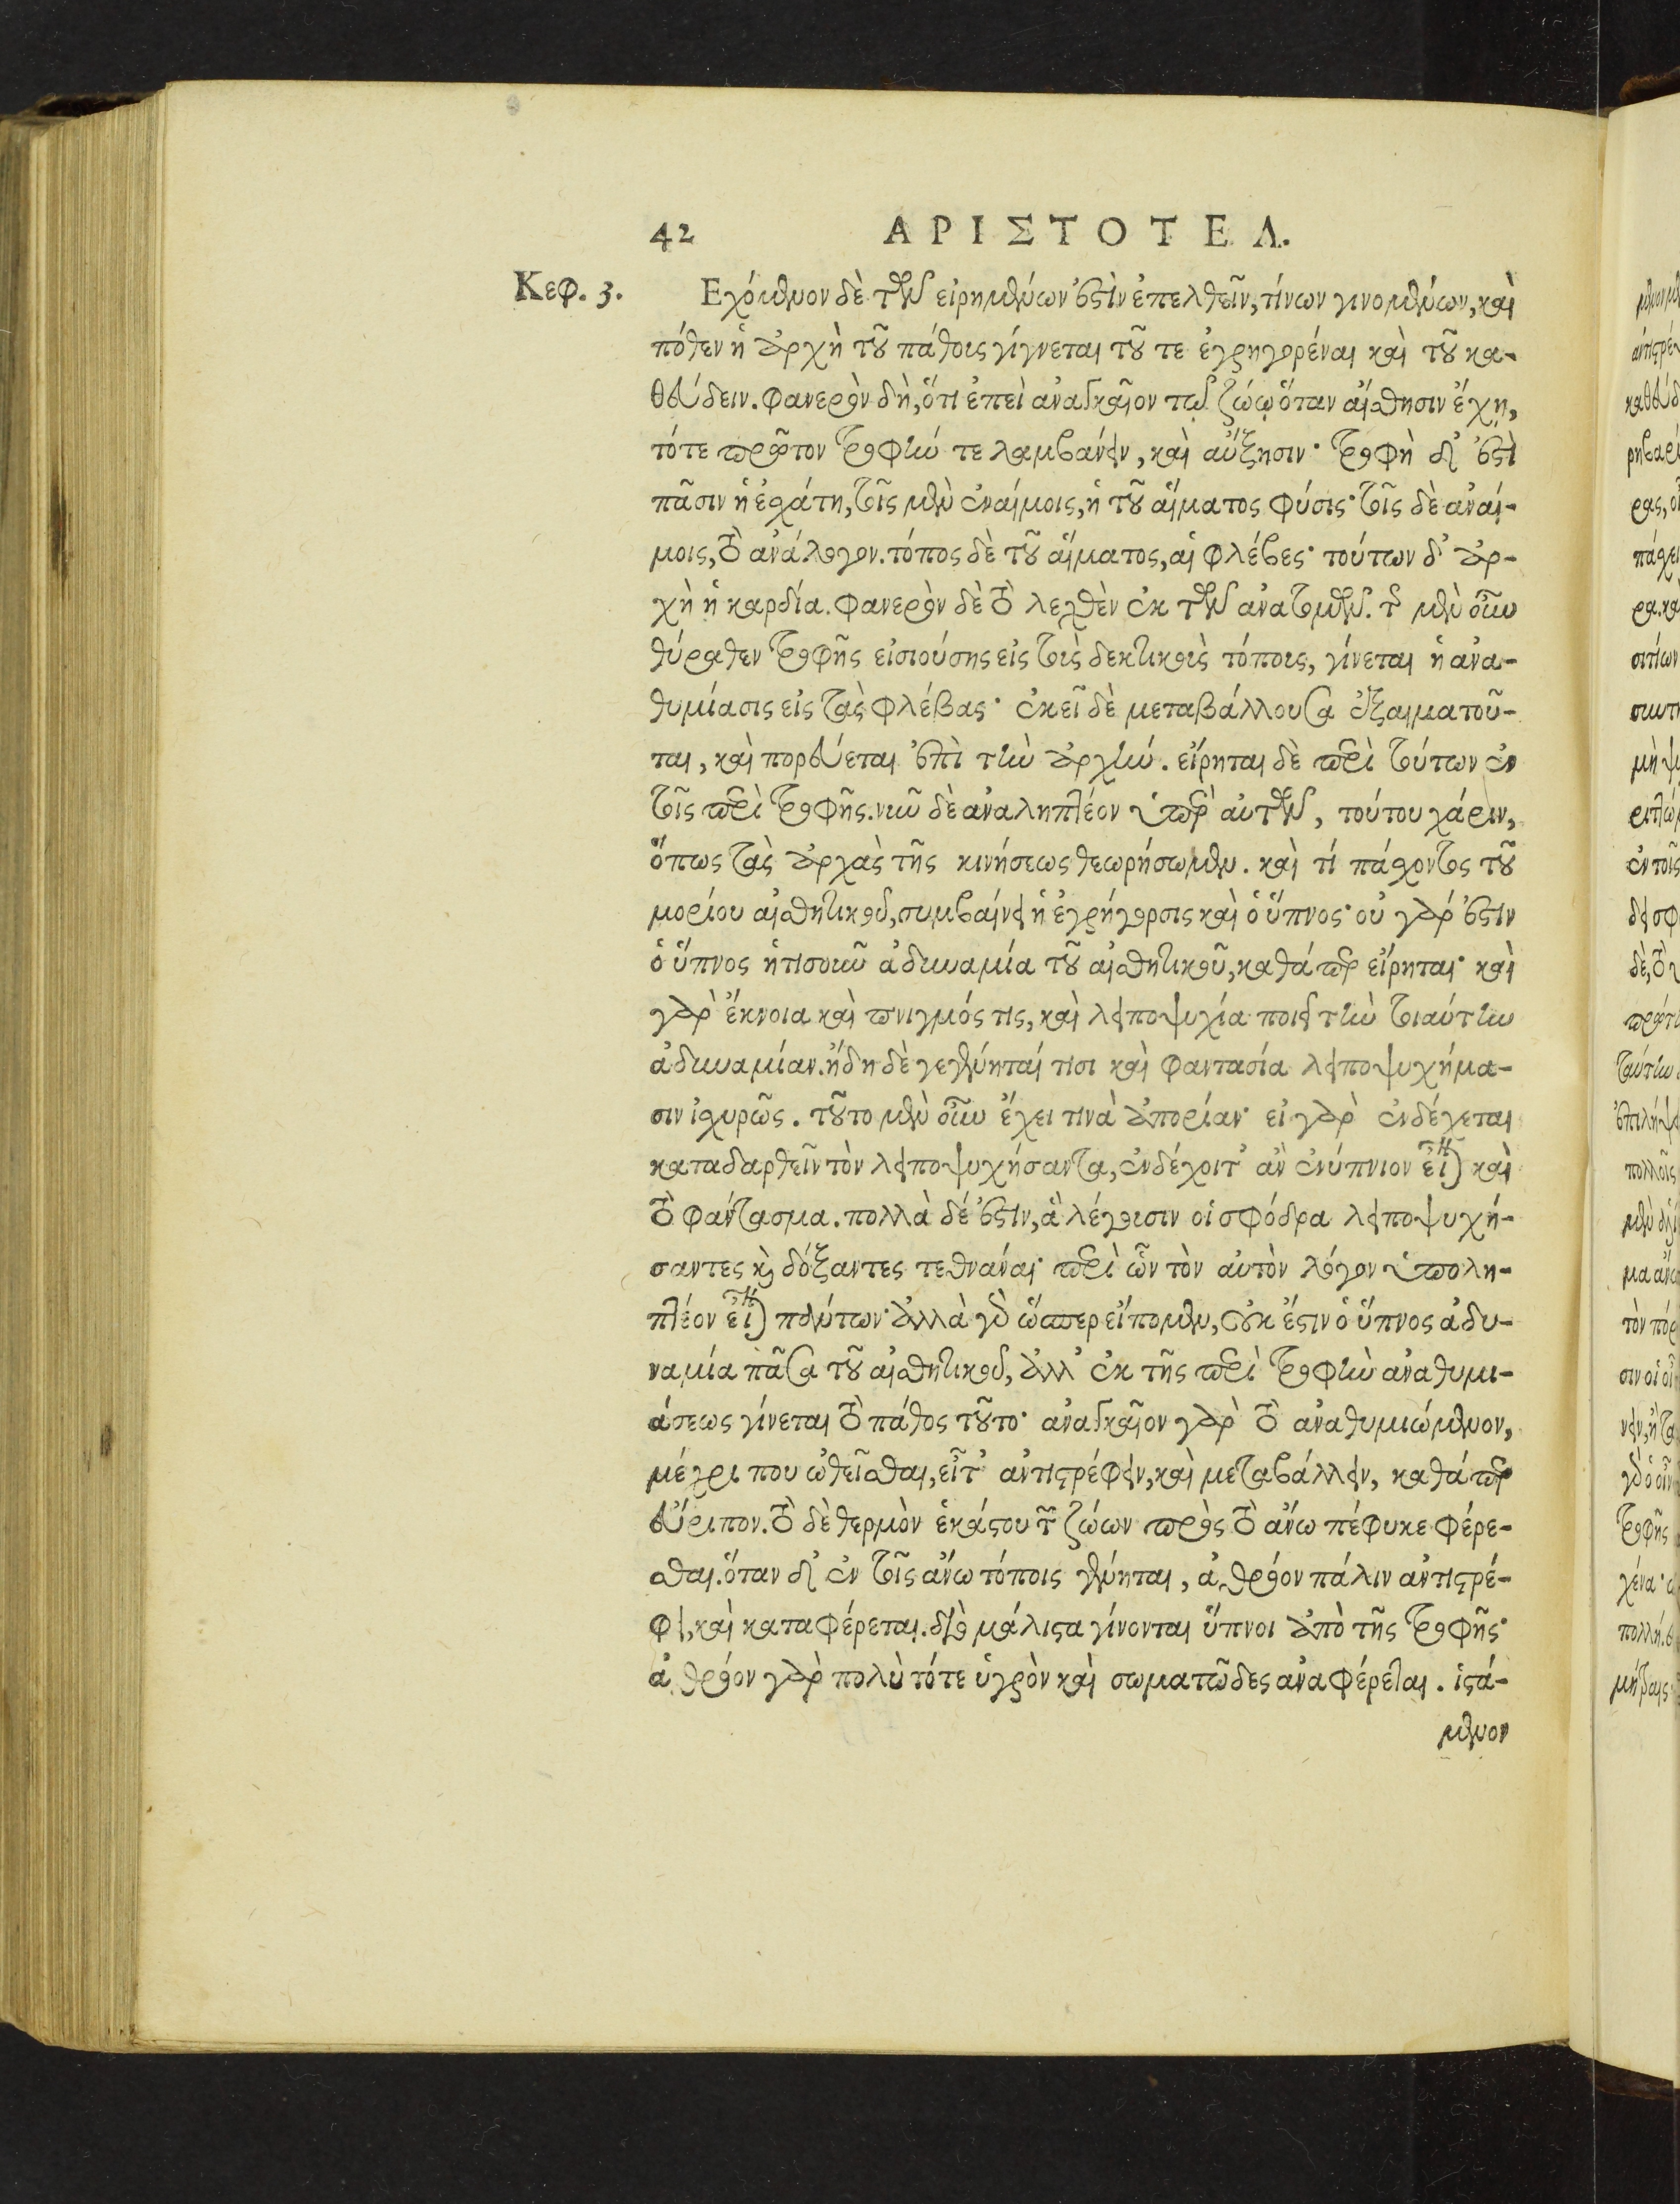 42 ΑΡΙΣΤΟΤΕΛ.
Κεφ. 3. Εχόμενον δὲ τῶν εἰρημένων ἐστὶν ἐπελθεῖν, τίνων γινομένων, καὶ
πόθεν ἡ ἀρχὴ τοῦ πάθους γίγνεται τοῦ τε ἐγρηγορέναι καὶ τοῦ κα-
θεύδειν. Φανερὸν δὴ, ὅτι ἐπεὶ ἀναγκαῖον τῷ ζώῳ ὅταν αἴσθησιν ἔχῃ,
τότε πρῶτον τροφήν τε λαμβάνειν, καὶ αὔξησιν· τροφὴ δ' ἐστὶ
πᾶσιν ἡ ἐσχάτη, τοῖς μὲν ἐναίμοις, ἡ τοῦ αἵματος φύσις· τοῖς δὲ ἀναί-
μοις, τὸ ἀνάλογον. τόπος δὲ τοῦ αἵματος, αἱ φλέβες· τούτων δ' ἀρ-
χὴ ἡ καρδία. Φανερὸν δὲ τὸ λεχθὲν ἐκ τῶν ἀνατομῶν. τῆς μὲν οὖν
θύραθεν τροφῆς εἰσιούσης εἰς τοὺς δεκτικοὺς τόπους, γίνεται ἡ ἀνα-
θυμίασις εἰς τὰς φλέβας· ἐκεῖ δὲ μεταβάλλουσα ἐξαιματοῦ-
ται, καὶ πορεύεται ἐπὶ τὴν ἀρχήν. εἴρηται δὲ περὶ τούτων ἐν
τοῖς περὶ τροφῆς. νῦν δὲ ἀναληπτέον ὑπὲρ αὐτῶν, τούτου χάριν,
ὅπως τὰς ἀρχὰς τῆς κινήσεως θεωρήσωμεν. καὶ τί πάσχοντος τοῦ
μορίου αἰσθητικοῦ, συμβαίνει ἡ ἐγρήγορσις καὶ ὁ ὕπνος· οὐ γάρ ἐστιν
ὁ ὕπνος ἡτισοῦν ἀδυναμία τοῦ αἰσθητικοῦ, καθάπερ εἴρηται· καὶ
γὰρ ἔκνοια καὶ πνιγμός τις, καὶ λειποψυχία ποιεῖ τὴν τοιαύτην
ἀδυναμίαν. ἤδη δὲ γεγένηταί τισι καὶ φαντασία λειποψυχήμα-
σιν ἰσχυρῶς. τοῦτο μὲν οὖν ἔχει τινὰ ἀπορίαν· εἰ γὰρ ἐνδέχεται
καταδαρθεῖν τὸν λειποψυχήσαντα, ἐνδέχοιτ' ἂν ἐνύπνιον εἶναι καὶ
τὸ φάντασμα. πολλὰ δέ ἐστιν, ἃ λέγουσιν οἱ σφόδρα λειποψυχή-
σαντες καὶ δόξαντες τεθνάναι· περὶ ὧν τὸν αὐτὸν λόγον ὑπολη-
πτέον εἶναι πάντων· ἀλλὰ γὰρ ὥσπερ εἴπομεν, οὐκ ἔστιν ὁ ὕπνος ἀδυ-
ναμία πᾶσα τοῦ αἰσθητικοῦ, ἀλλ' ἐκ τῆς περὶ τροφὴν ἀναθυμι-
άσεως γίνεται τὸ πάθος τοῦτο· ἀναγκαῖον γὰρ τὸ ἀναθυμιώμενον,
μέχρι που ὠθεῖσθαι, εἶτ' ἀντιστρέφειν, καὶ μεταβάλλειν, καθάπερ
εὔριπον. τὸ δὲ θερμὸν ἑκάστου τῶν ζώων πρὸς τὸ ἄνω πέφυκε φέρε-
σθαι. ὅταν δ' ἐν τοῖς ἄνω τόποις γένηται, ἀθρόον πάλιν ἀντιστρέ-
φει, καὶ καταφέρεται. διὸ μάλιστα γίνονται ὕπνοι ἀπὸ τῆς τροφῆς·
ἀθρόον γὰρ πολὺ τότε ὑγρὸν καὶ σωματῶδες ἀναφέρεται. ἱστά-
μενον